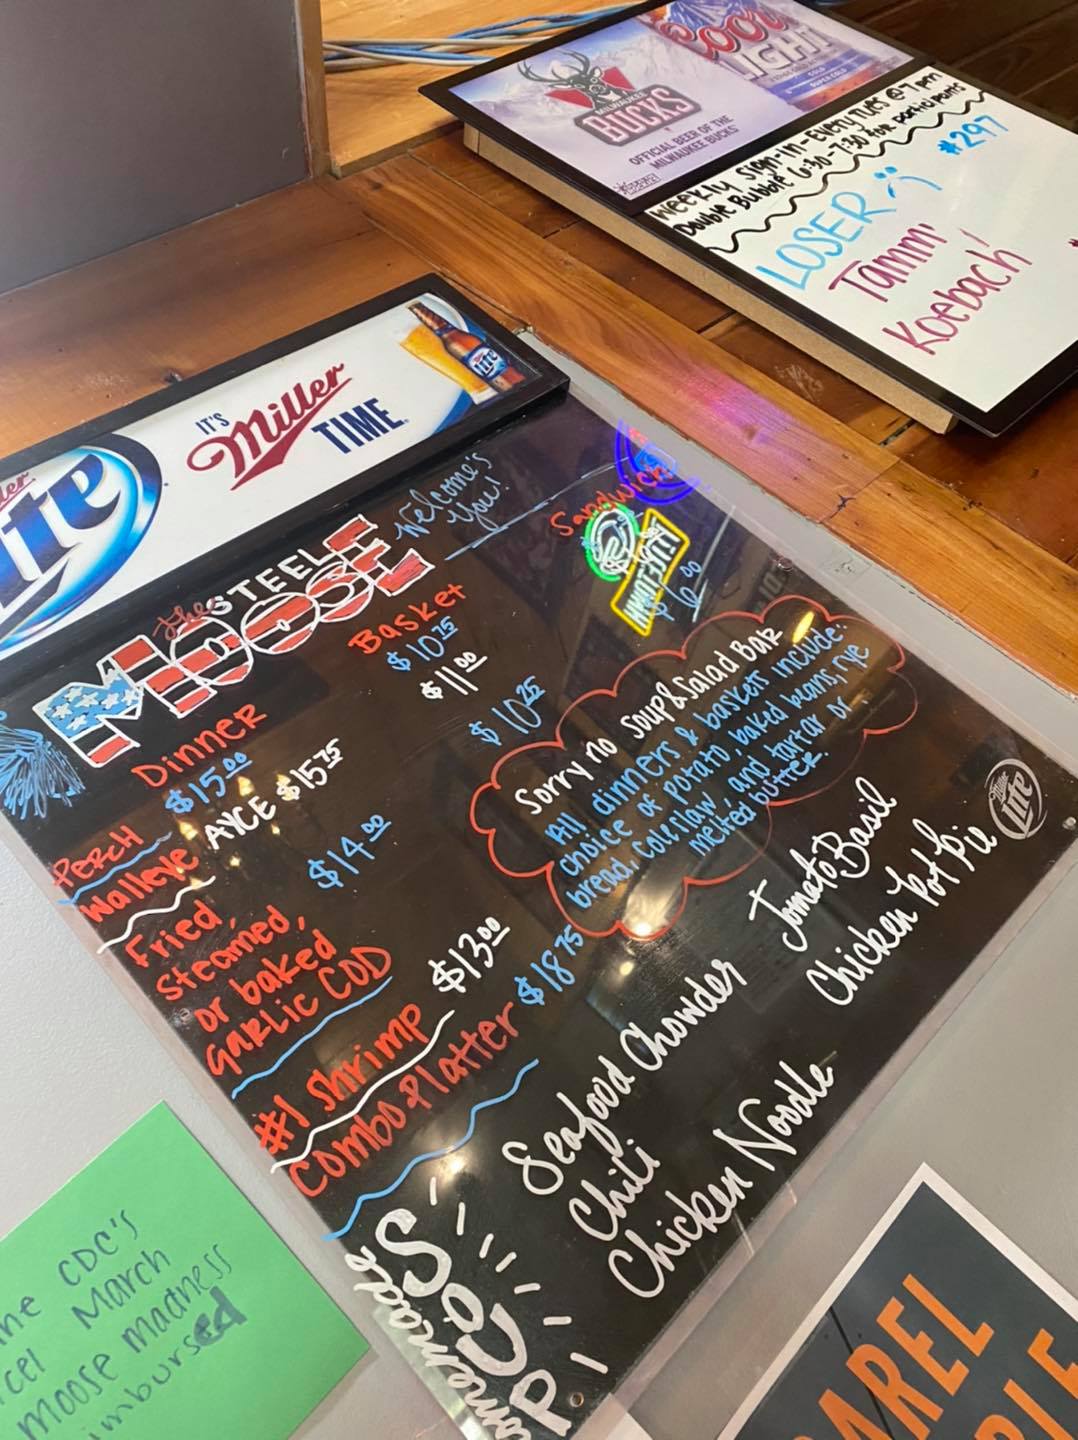 Coors
LIGHT
COLD
SUPER COLD
MILWAUKEE
BUCKS
OFFICIAL BEER OF THE
MILWAUKEE BUCKS
Weekly Sign-In-Every Tues @ 7pm
Double Bubble 6:30-7:30 for participants
LOSER :(
#297
Tammi
Koebach
Lite
IT'S
Miller
TIME
Lite
the STEELE
MOOSE
Welcome's
You!
Dinner
Basket
Sandwich
Perch $15.00 $10.75
Walleye AYCE $15.75 $11.00
$6.00
Fried,
Steamed,
or baked
Garlic COD
$14.00 $10.25
#1 Shrimp $13.00
Combo Platter $18.75
Sorry no Soup & Salad Bar
All dinners & baskets include:
choice of potato, baked beans, rye
bread, coleslaw, and tartar or
melted butter.
Miller
Lite
Homemade
SOUP
Seafood Chowder
Chili
Chicken Noodle
Tomato Basil
Chicken Pot Pie
CDC's
March
moose madness